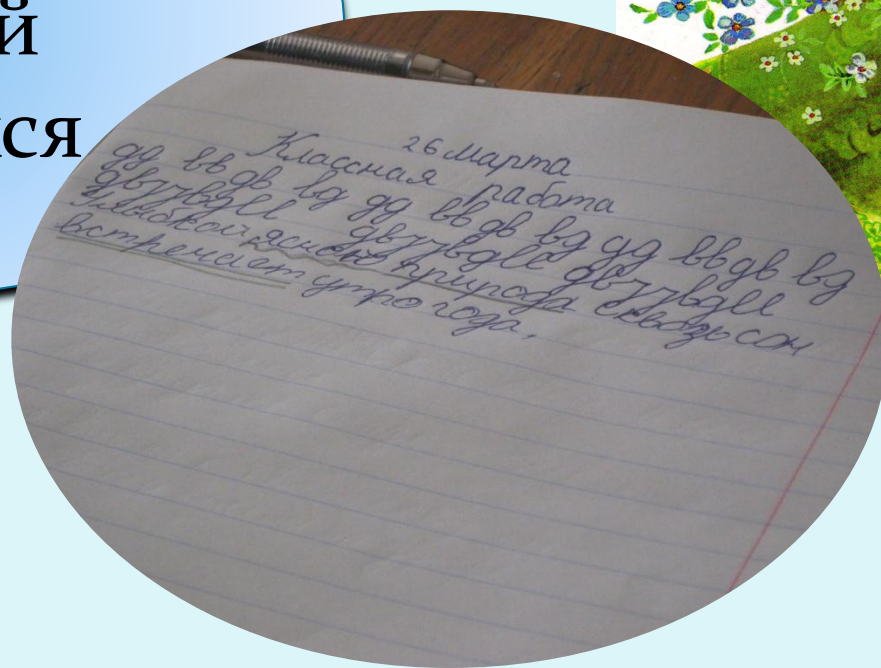 й
ся
26 марта
Классная работа
дд вв дв вд дд вв дв вд дд вв дв вд
Улыбкой ясною природа сквозь сон
встречает утро года.